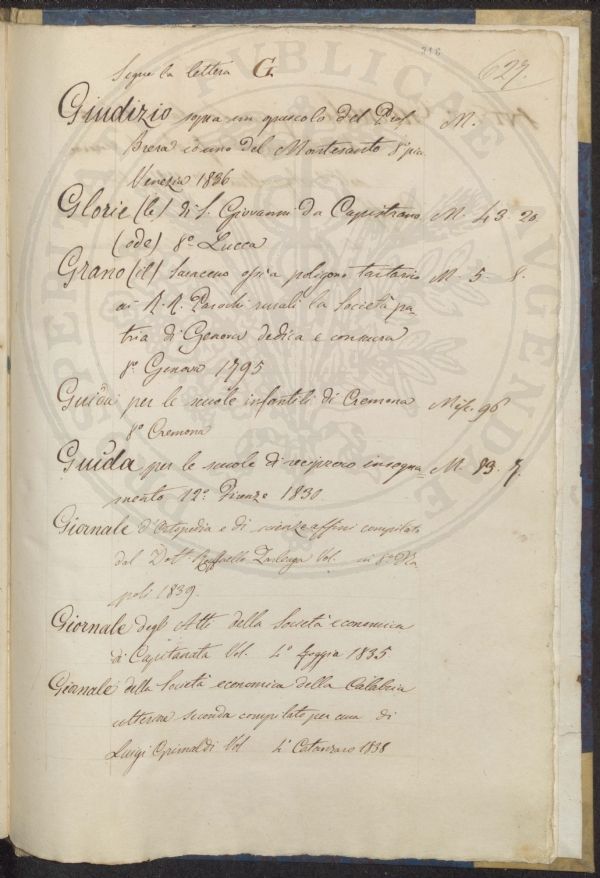 216
627.
Segue la lettera G.
Giudizio sopra un opuscolo del Prof. M.
Brera del Montesanto 8°
Venezia 1836
Glorie (le) di S. Giovanni da Capistrano M. 43. 20
(ode) 8° Lucca
Grano (il) Saraceno ossia poligono tartarico M. 5 - 8.
ai R. R. Parochi rurali la Società pa-
tria di Genova dedica e consacra
8° Genova 1795
Guida per le scuole infantili di Cremona Misc. 96
8° Cremona
Guida per le scuole di reciproco insegna- M. 83. 7.
mento 12° Firenze 1830.
Giornale d'Ortopedia e di scienze affini compilato
dal Dott. Raffaello Zarlenga Vol. in 8° Na
poli 1839.
Giornale degli Atti della Società economica
di Capitanata Vol. 4° Foggia 1835
Giornale della Società economica della Calabria
ulteriore seconda compilato per cura di
Luigi Grimaldi Vol 4° Catanzaro 1838